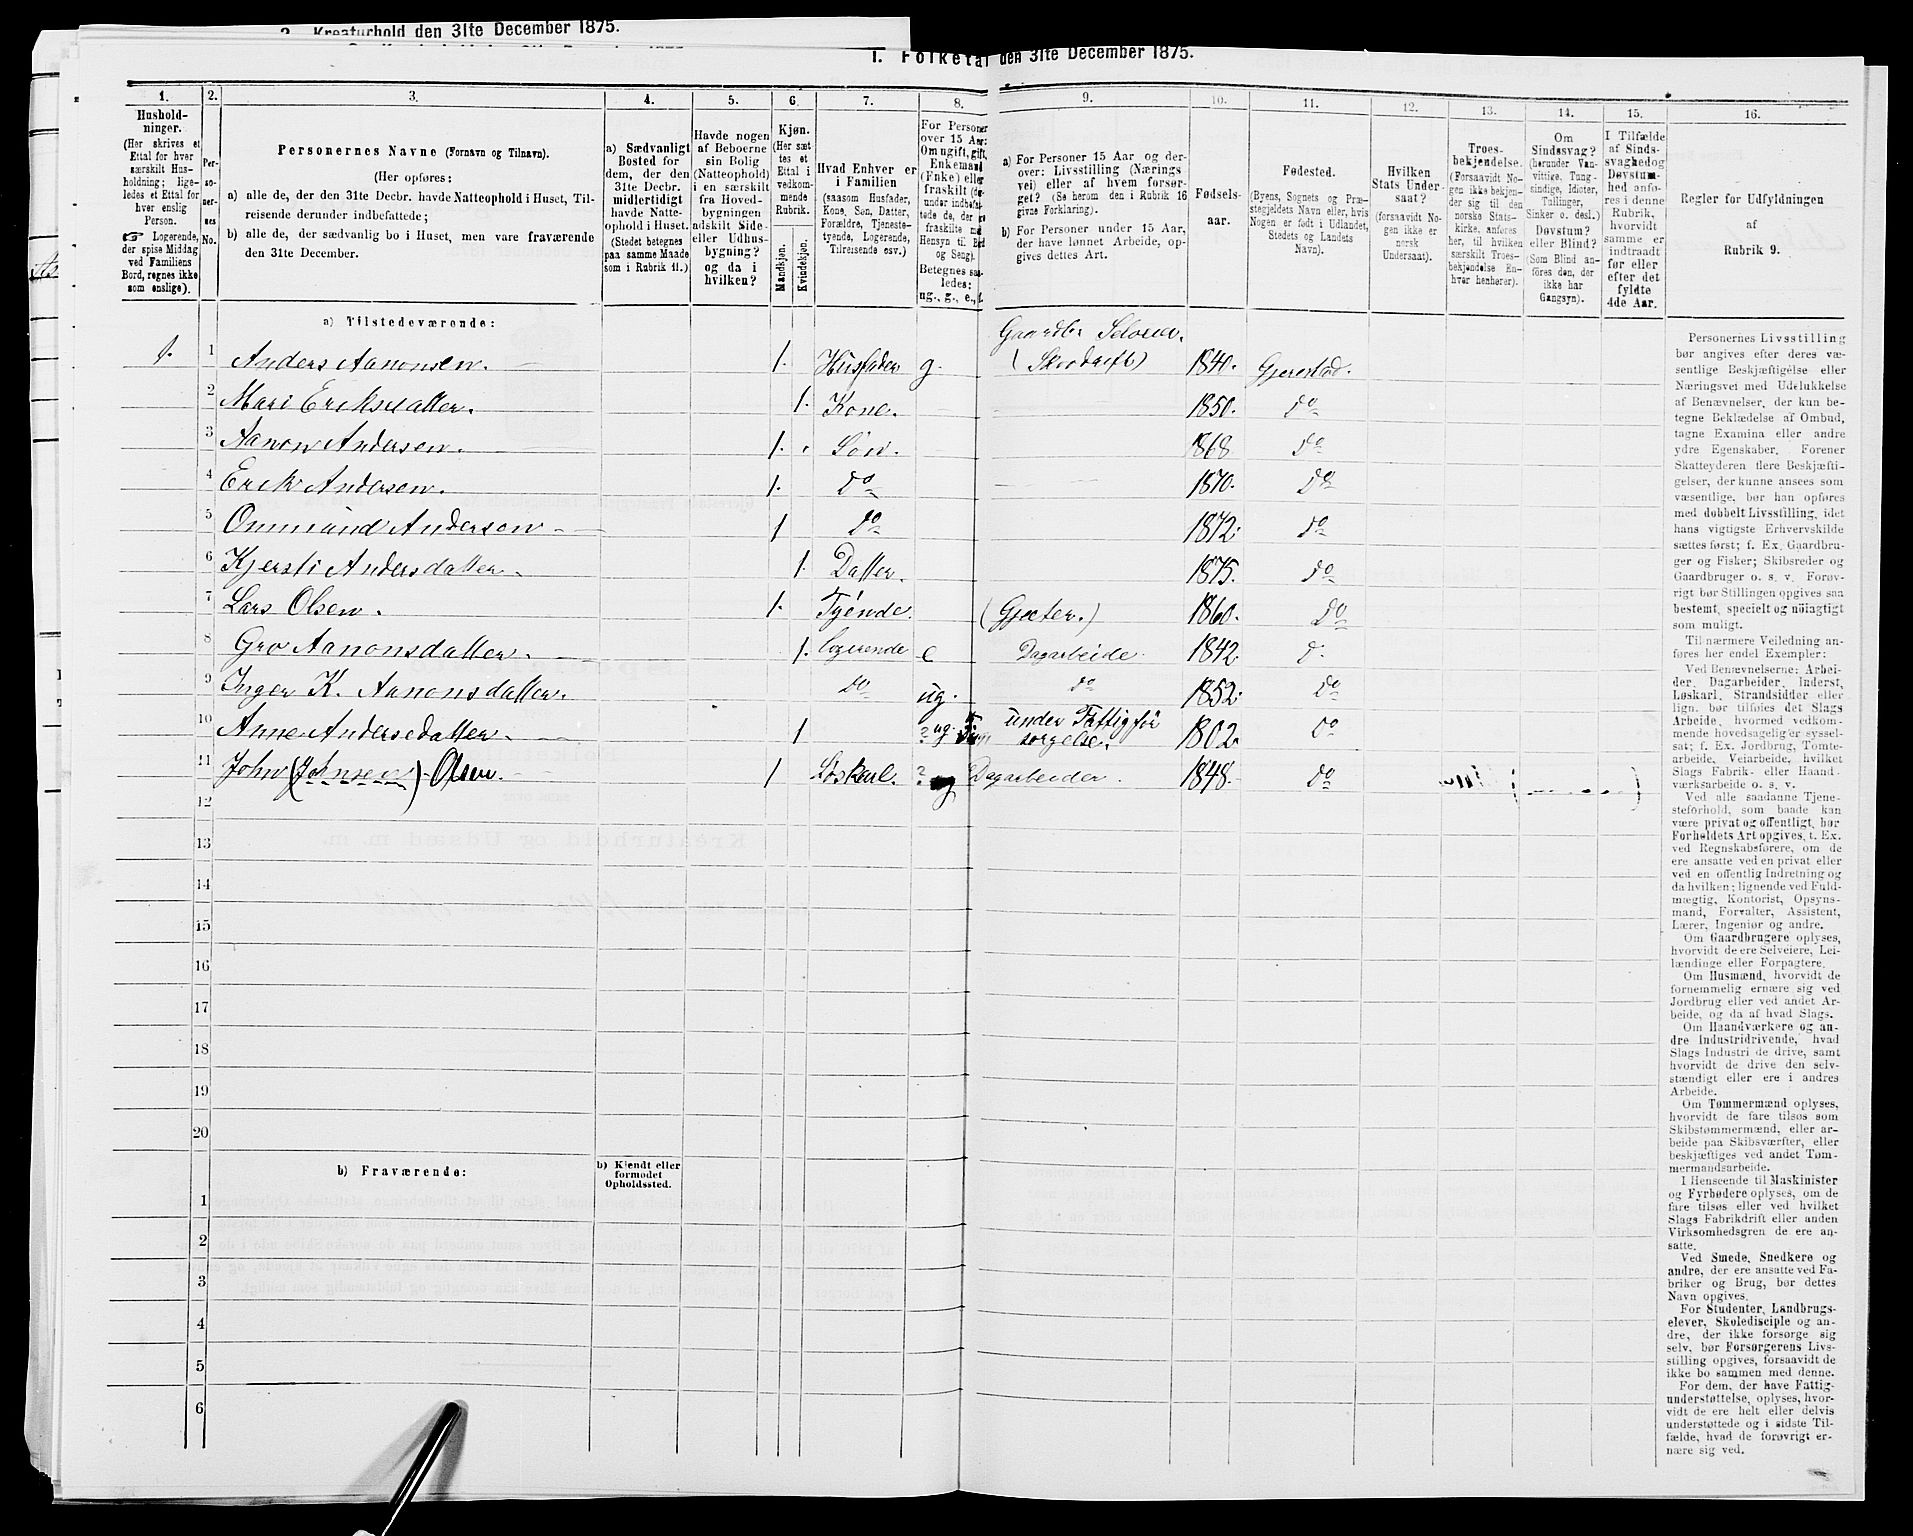 2. Kreaturhold den 31te December 1875.
I. Folketal den 31te December 1875.
1. 2. 3. 4. 5. 6. 7. 8. 9. 10. 11. 12. 13. 14. 15. 16.
Hushold-
ninger.
(Her skrives et
Ettal for hver
særskilt Hus-
holdning; lige-
ledes et Ettal for
hver enslig
Person.
☞ Logerende,
der spise Middag
ved Familiens
Bord, regnes ikke
som enslige).
Per-
so-
ner-
nes
No.
Personernes Navne (Fornavn og Tilnavn).
(Her opføres:
a) alle de, der den 31te Decbr. havde Natteophold i Huset, Til-
reisende derunder indbefattede;
b) alle de, der sædvanlig bo i Huset, men vare fraværende
den 31te December.
a) Sædvanligt
Bosted for
dem, der den
31te Decbr.
midlertidigt
havde Natte-
ophold i Huset.
(Stedet betegnes
paa samme Maade
som i Rubrik 11.)
Havde nogen
af Beboerne
sin Bolig
(Natteophold)
i en særskilt
fra Hoved-
bygningen
adskilt Side-
eller Udhus-
bygning?
og da i
hvilken?
Kjøn.
(Her sæt-
tes et
Ettal i
vedkom-
mende
Rubrik.
Mandkjøn.
Kvindekjøn.
Hvad Enhver er
i Familien
(saasom Husfader,
Kone, Søn, Datter,
Forældre, Tjeneste-
tyende, Logerende,
Tilreisende osv.)
For Personer
over 15 Aar:
Om ugift, gift,
Enkemand
(Enke) eller
fraskilt (de-
under indbefat-
tede de, der er
fraskilte med
Hensyn til Bord
og Seng).
Betegnes saa-
ledes:
ug., g., e., f.
a) For Personer 15 Aar og der-
over: Livsstilling (Nærings-
vei) eller af hvem forsør-
get? (Se herom den i Rubrik 16
givne Forklaring).
b) For Personer under 15 Aar,
der have lønnet Arbeide, op-
gives dettes Art.
Fødsels-
aar.
Fødested.
(Byens, Sognets og Præ-
stegjeldets Navn eller, hvis
Nogen er født i Udlandet,
Stedets og Landets
Navn).
Hvilken
Stats Under-
saat?
(forsaavidt No-
gen ikke er
norsk
Undersaat).
Troes-
bekjendelse.
(Forsaavidt No-
gen ikke bekjen-
der sig til den
norske Stats-
kirke, anføres
her, til hvilken
særskilt Troes-
bekjendelse En-
hver henhører).
Om
Sindssvag?
(herunder Van-
vittige, Tung-
sindige, Idioter,
Tullinger,
Sinker o. desl.)
Døvstum?
eller Blind?
(Som Blind an-
føres den, der
ikke har
Gangsyn).
I Tilfælde
af Sinds-
svaghed og
Døvstum-
hed anfø-
res i denne
Rubrik,
hvorvidt
samme er
indtraadt
før eller
efter det
fyldte
4de Aar.
Regler for Udfyldningen
af
Rubrik 9.
a) Tilstedeværende:
1. 1 Anders Aanonsen. 1. Husfader g. Gaardbr Seloeier. (Skovdrift) 1840. Gjerestad.
2 Mari Eriksdatter. 1. Kone. 1850. do
3 Aanon Andersen. 1. Søn. 1868. do
4 Erik Andersen. 1. do 1870. do
5 Ommund Anderson 1 do 1872. do
6 Kjersti Andersdatter. 1. Datter. 1875. do
7 Lars Olsen. 1. Tyende. (Gjæter.) 1860. do
8 Gro Aanonsdatter. 1. logerende e Dagarbeide. 1842. d.
9 Inger K. Aanonsdatter. do ug. do 1852. do
10 Anne Andersedatter. 1 ? ug. under Fattigfor
sorgelse. 1802. do
11 John (Johnsen) Olsen. 1 Løskarl. ? ug Dagarbeider. 1848. do
12
13
14
15
16
17
18
19
20
b) Fraværende:
b) Kjendt eller
formodet
Opholdssted.
1
2
3
4
5
6
Personernes Livsstilling
bør angives efter deres væ-
sentlige Beskjæftigelse eller
Næringsvei med Udelukkelse
af Benævnelser, der kun be-
tegne Beklædelse af Ombud,
tagne Examina eller andre
ydre Egenskaber. Forener
Skatteyderen flere Beskjæfti-
gelser, der kunne ansees som
væsentlige, bør han opføres
med dobbelt Livsstilling, idet
hans vigtigste Erhvervskilde
sættes først; f. Ex. Gaardbru-
ger og Fisker; Skibsreder og
Gaardbruger o. s. v. Forøv-
rigt bør Stillingen opgives saa
bestemt, specielt og nöiagtigt
som muligt.
Til nærmere Veiledning an-
føres her endel Exempler:
Ved Benævnelserne: Arbei-
der, Dagarbeider, Inderst,
Løskarl, Strandsidder eller
lign. bør tilføies det Slags
Arbeide, hvormed vedkom-
mende hovedsagelig er syssel-
sat; f. Ex. Jordbrug, Tomte-
arbeide, Veiarbeide, hvilket
Slags Fabrik- eller Haand-
værksarbeide o. s. v.
Ved alle saadanne Tjene-
steforhold, som baade kan
være privat og offentligt, bør
Forholdets Art opgives, t. Ex.
ved Regnskabsførere, om de
ere ansatte ved en privat eller
ved en offentlig Indretning og
da hvilken; lignende ved Fuld-
mægtig, Kontorist, Opsyns-
mand, Forvalter, Assistent,
Lærer, Ingeniør og andre.
Om Gaardbrugere oplyses,
hvorvidt de ere Selveiere, Lei-
lændinge eller Forpagtere.
Om Husmænd, hvorvidt de
fornemmelig ernære sig ved
Jordbrug eller ved andet Ar-
beide, og da af hvad Slags.
Om Haandværkere og an-
dre Industridrivende, hvad
Slags Industri de drive, samt
hvorvidt de drive den selv-
stændigt eller ere i andres
Arbeide.
Om Tømmermænd oplyses,
hvorvidt de fare tilsøs som
Skibstømmermænd, eller ar-
beide paa Skibsværfter, eller
beskjæftiges ved andet Tøm-
mermandsarbeide.
I Henseende til Maskinister
og Fyrbødere oplyses, om de
fare tilsøs eller ved hvilket
Slags Fabrikdrift eller anden
Virksomhedsgren de ere an-
satte.
Ved Smede, Snedkere og
andre, der ere ansatte ved Fa-
briker og Brug, bør dettes
Navn opgives.
For Studenter, Landbrugs-
elever, Skoledisciple og an-
dre, der ikke forsørge sig
selv, bør Forsørgerens Livs-
stilling opgives, forsaavidt de
ikke bo sammen med denne.
For dem, der have Fattig-
understøttelse, oplyses, hvor-
vidt de ere helt eller delvis
understøttede og i sidste Til-
fælde, hvad de forøvrigt er-
nære sig ved.